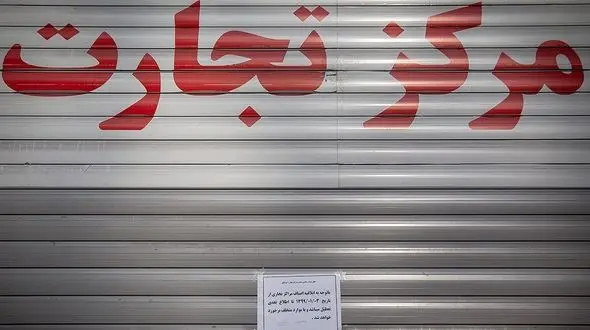 مرکز تجارت
باتوجه به ابلاغیه اصناف مراکز تجاری از
تاریخ ۱۳۹۹/۰۱/۰۳ تا اطلاع بعدی
تعطیل میباشد و با موارد متخلف برخورد
خواهد شد .